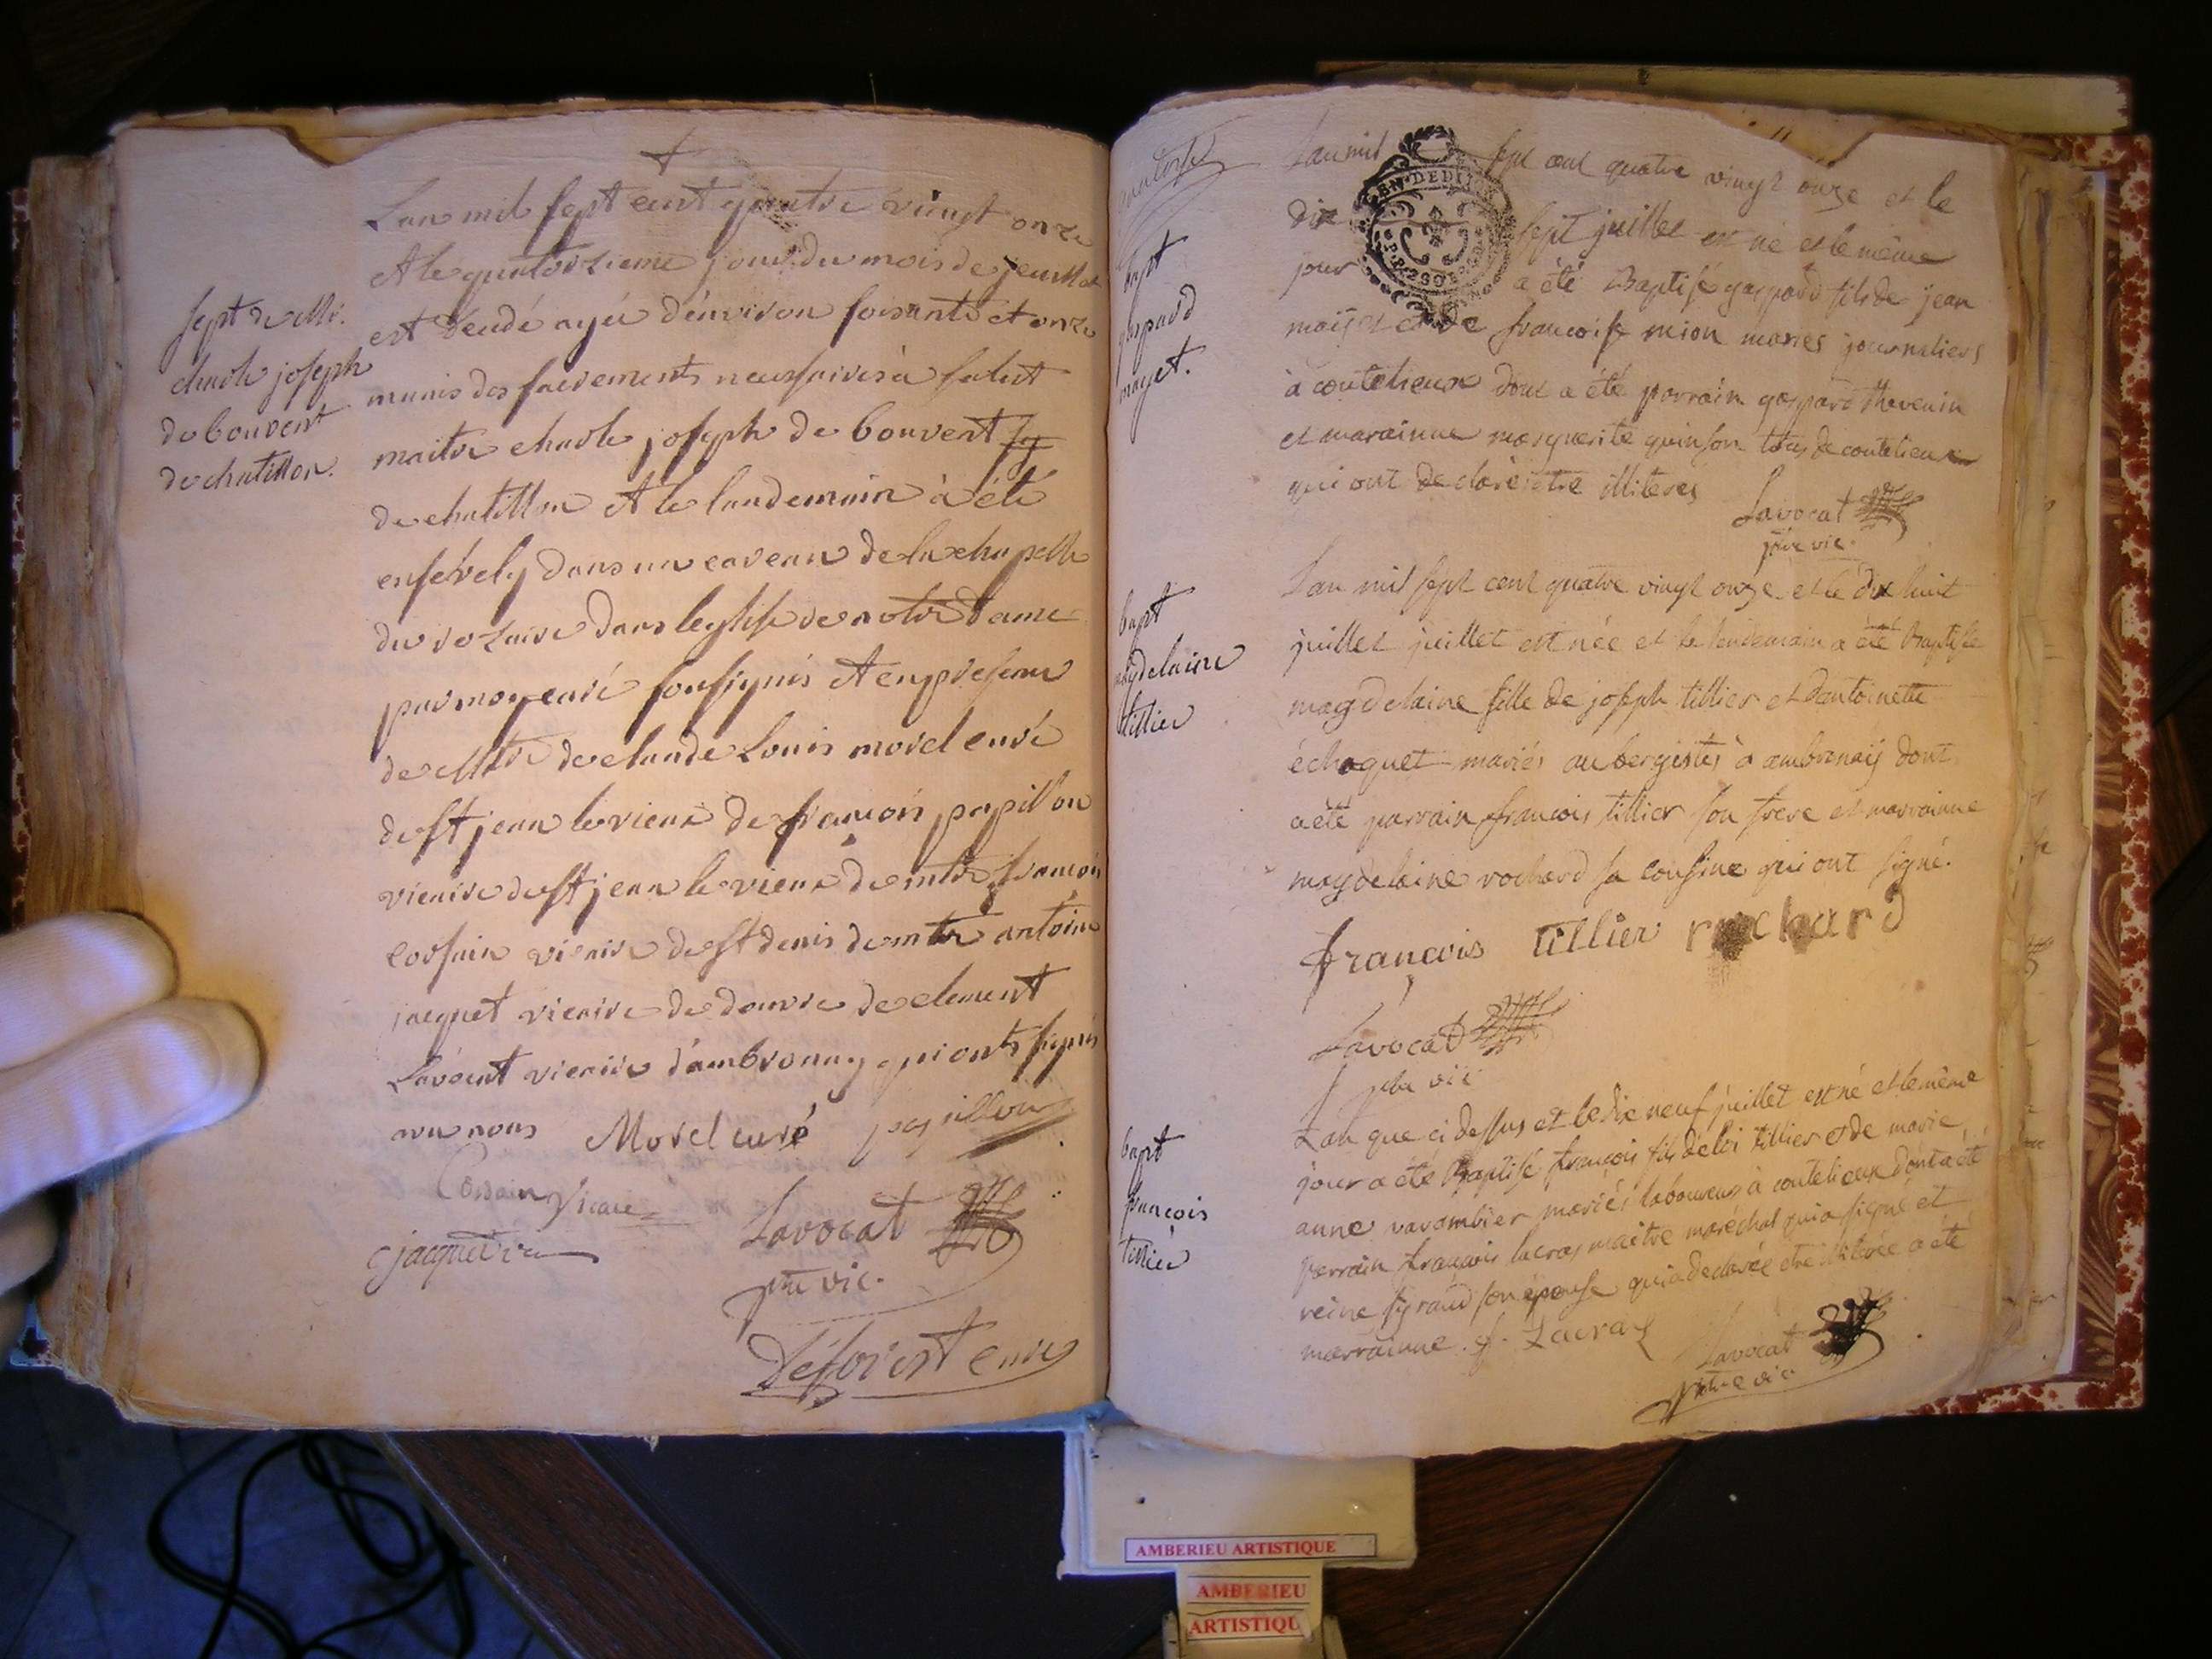 sept de Mr.
charle joseph
de bouvent
de chatillon.
Lan mil sept cent quatre vingt onze
et le quatorzieme jour du mois de jeuillet
est décedé agée d'environ soisante et onze
munis des sacrements necessaires à salut
maitre charle joseph de bouvent sg
de chatillon et le landemain à été
ensévely dans un caveau de la chapelle
du rozaire dans leglise de notre dame
par moy curé soussignés et en presence
de Mtre de claude Louis morel curé
de st jean le vieux de francois papillon
vicaire de st jean le vieux de mtre francois
cossain vicaire de st denis de mtre antoine
jacquet vicaire de douvre de clement
Lavocat vicaire d'ambronay qui onts signés
avec nous Morel curé papillon
Cossain Vicaire
jacquet vic Lavocat
ptre vic.
Déforest curé
bapt
gaspard
mayet.
Lan mil sept cent quatre vingt onze et le
dix sept juillet est né et le même
jour a été Baptisé gaspard fils de jean
maijet et de francoise mion mariés journaliers
à coutelieux dont a été parrain gaspard thevenin
et marainne marguerite quinson tous de coutelieux
qui ont declaré être illiteres
Lavocat
ptre vic.
GEN. DEDI
bapt
magdelaine
tillier
Lan mil sept cent quatre vingt onze et le dix huit
juillet juillet est née et le lendemain a été Baptisée
magdelaine fille de joseph tillier et d'antoinette
échaquet mariés aubergistes à ambronaij dont
a été parrain francois tillier son frere et marrainne
magdelaine rochard sa cousine qui ont signé.
françois tillier rochard
Lavocat
ptre vic
bapt
francois
tillier
Lan que ci dessus et le dix neuf juillet est né et le même
jour a été Baptisé françois fils d'eloi tillier et de marie
anne varambier mariés laboureurs à coutelieux dont a été
parrain françois lacras maitre maréchal qui a signé et
reine sigraud son épouse qui a declarée etre illiterée a été
marrainne. f. Lacras
Lavocat
ptre vic.
AMBERIEU ARTISTIQUE
AMBERIEU
ARTISTIQU